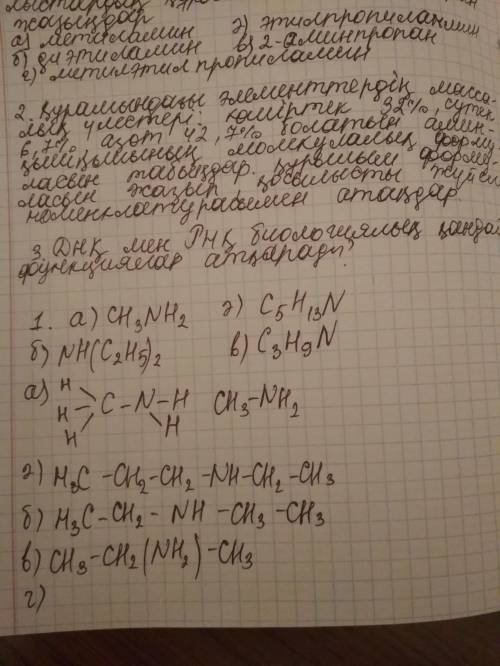 жазыңдар
а) метиламин ә) этилпропиламин
б) диэтиламин в) 2-аминпропан
г) метилэтилпропиламин
2. Құрамындағы элементтердің масса-
лық үлестері: көміртек 32%, сутек
6,7%, азот 42,7% болатын амин-
қышқылының молекулалық форму-
ласын табыңдар. Құрылым форму-
ласын жазып, қосылысты жүйелі
номенклатурасымен атаңдар
3. ДНҚ мен РНҚ биологиялық қандай
функциялар атқарады?
1. а) CH3NH2 ә) C5H13N
б) NH(C2H5)2 в) C3H9N
а) H H H C - N - H H CH3-NH2
ә) H3C - CH2 - CH2 - NH - CH2 - CH3
б) H3C - CH2 - NH - CH3 - CH3
в) CH3 - CH2(NH2) - CH3
г)